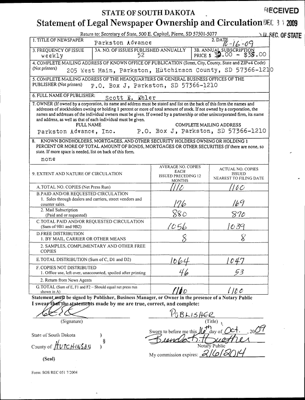 STATE OF SOUTH DAKOTA
Statement of Legal Newspaper Ownership and Circulation
RECEIVED
DEC 11 2009
S.D. SEC. OF STATE
Return to: Secretary of State, 500 E. Capitol, Pierre, SD 57501-5077
1. TITLE OF NEWSPAPER
Parkston Advance
2. DATE
3. FREQUENCY OF ISSUE
weekly
3A. NO. OF ISSUES PUBLISHED ANNUALLY
52
3B. ANNUAL SUBSCRIPTION PRICE $
4. COMPLETE MAILING ADDRESS OF KNOWN OFFICE OF PUBLICATION (Street, City, County, State and ZIP+4 Code) (Not printers)
205 West Main, Parkston, Hutchinson County, SD 57366-1210
5. COMPLETE MAILING ADDRESS OF THE HEADQUARTERS OF GENERAL BUSINESS OFFICE OF THE PUBLISHER (Not printers)
P.O. Box J, Parkston, SD 57366-1210
6. FULL NAME OF PUBLISHER:
Scott E. Ehler
7. OWNER (If owned by a corporation, its name and address must be stated and list on the back of this form the names and addresses of stockholders owning or holding 1 percent or more of total amount of stock. If not owned by a corporation, the names and address of the individual owners must be given. If owned by a partnership or other unincorporated firm, its name and address, as well as that of each individual must be given.
FULL NAME COMPLETE MAILING ADDRESS
Parkston Advance, Inc. P.O. Box J, Parkston, SD 57366-1210
8. KNOWN BONDHOLDERS, MORTGAGES, AND OTHER SECURITY HOLDERS OWNING OR HOLDING 1 PERCENT OR MORE OF TOTAL AMOUNT OF BONDS, MORTGAGES OR OTHER SECURITIES (If there are none, so state. If more space is needed, list on back of this form).
none
9. EXTENT AND NATURE OF CIRCULATION
AVERAGE NO. COPIES EACH ISSUED PRECEDING 12 MONTHS
ACTUAL NO. COPIES ISSUED NEAREST TO FILING DATE
A. TOTAL NO. COPIES (Net Press Run) 1110 1100
B. PAID AND/OR REQUESTED CIRCULATION
1. Sales through dealers and carriers, street vendors and counter sales 176 169
2. Mail Subscription (Paid and or requested) 880 870
C. TOTAL PAID AND/OR REQUESTED CIRCULATION (Sum of 9B1 and 9B2) 1056 1039
D. FREE DISTRIBUTION
1. BY MAIL, CARRIER OR OTHER MEANS 8 8
2. SAMPLES, COMPLIMENTARY AND OTHER FREE COPIES
E. TOTAL DISTRIBUTION (Sum of C, D1 and D2) 1064 1047
F. COPIES NOT DISTRIBUTED
1. Office use, left over, unaccounted, spoiled after printing 46 53
2. Return from News Agents
G. TOTAL (Sum of E, F1 and F2 - Should equal net press run shown in A) 1110 1100
Statement must be signed by Publisher, Business Manager, or Owner in the presence of a Notary Public
I swear that the statements made by me are true, correct, and complete:
PUBLISHER
(Signature) (Title)
State of South Dakota )
County of HUTCHINSON )
(Seal)
Sworn to before me this 16th day of Oct. 2009
Notary Public
My commission expires: 2/6/2014
Form: SOS REC 051 7/2004